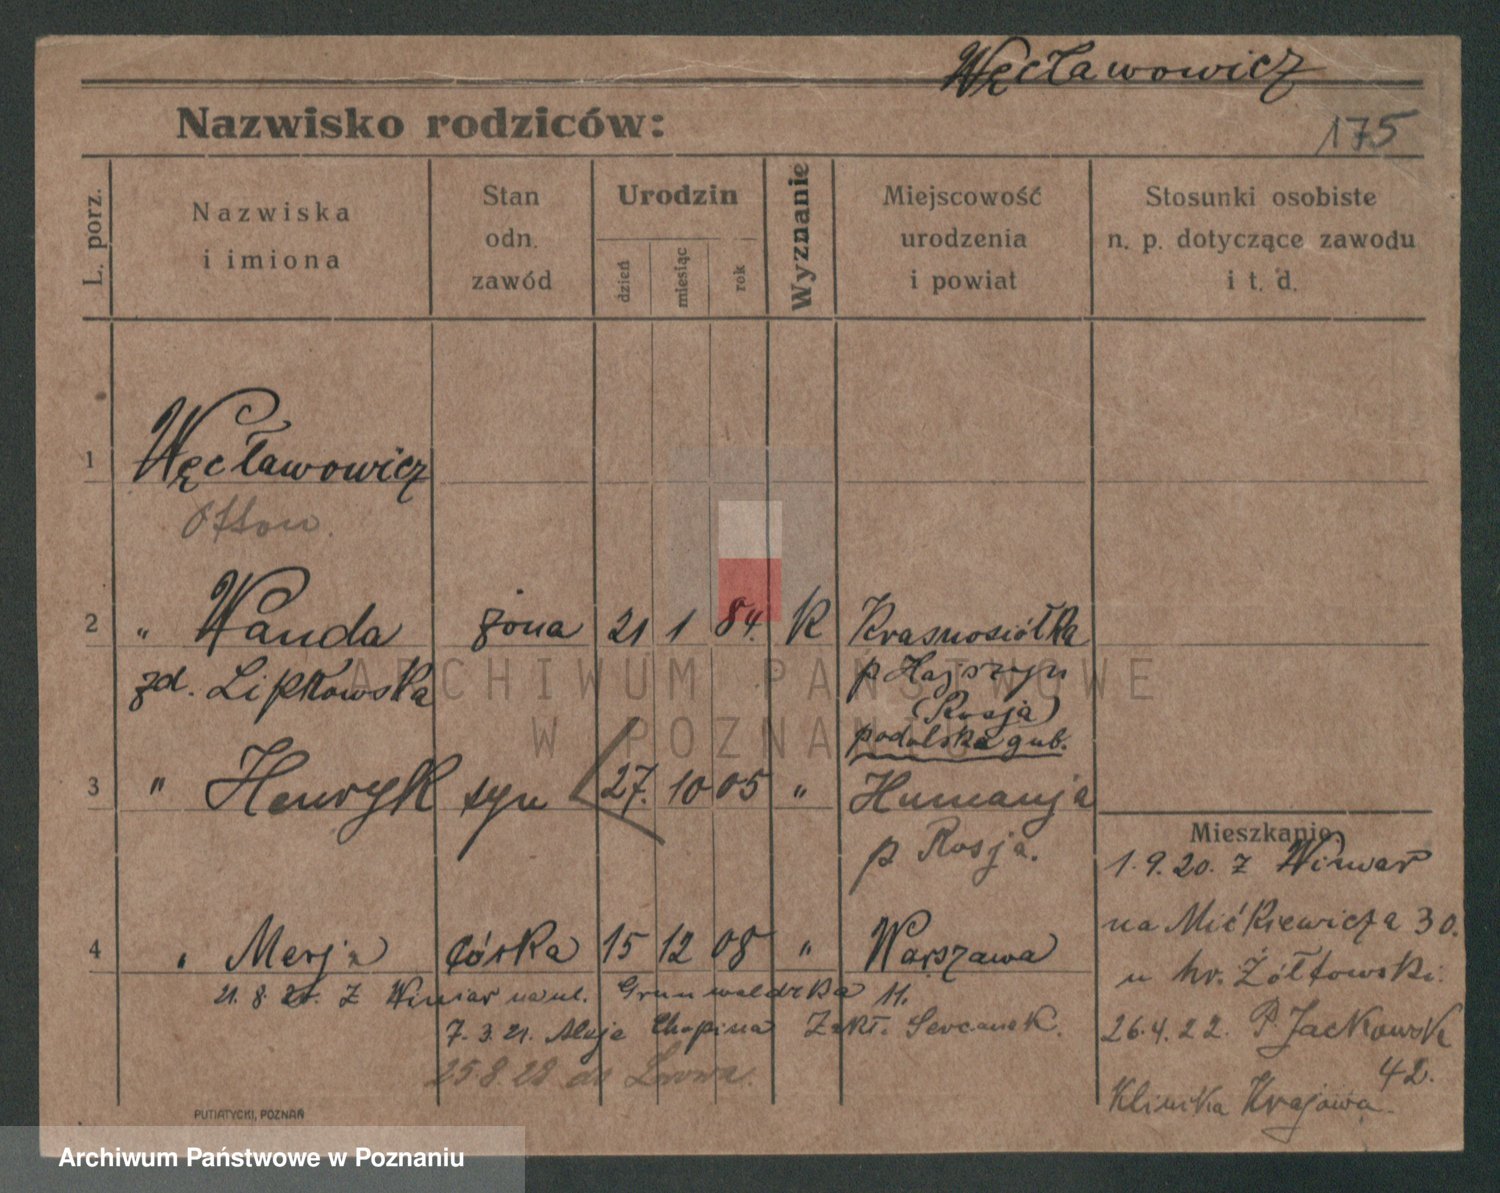 Węcławowicz
Nazwisko rodziców:
175
L. porz.
Nazwiska
i imiona
Stan
odn.
zawód
Urodzin
dzień
miesiąc
rok
Wyznanie
Miejscowość
urodzenia
i powiat
Stosunki osobiste
n. p. dotyczące zawodu
i t. d.
1 Węcławowicz
Otton.
2 " Wanda żona 21 1 84. K Krasnosiółka
zd. Lipkowska p Hajszyn
(Rosja)
podolska gub.
3 " Henryk syn 27. 10 05 " Humanja
p Rosja.
Mieszkanie
1.9.20. z Winiar
na Mickiewicza 30.
u hr. Żółtowski.
4 " Merja córka 15 12 08 " Warszawa
21. 8. z Winiar na ul. Grunwaldzka 11.
7. 3. 21. Aleje Chopina Zakł. Sercanek.
26.4.22. P. Jackowsk
42.
25.8.28 do Lwowa.
Klinika Krajowa
PUTIATYCKI, POZNAŃ
ARCHIWUM PAŃSTWOWE
W POZNANIU
Archiwum Państwowe w Poznaniu